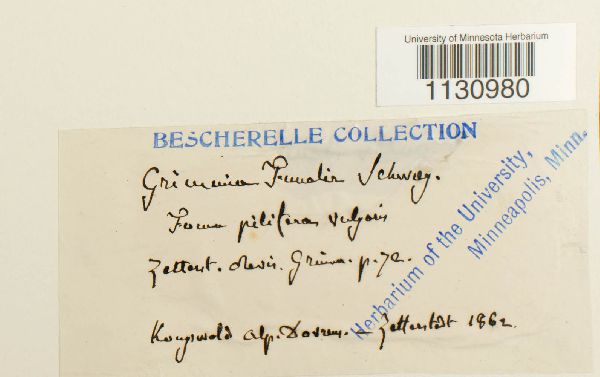 University of Minnesota Herbarium
1130980
BESCHERELLE COLLECTION
Grimmia Funalis Schwæg.
Forma pilifera vulgaris
Zetterst. Revis. Grimm. p. 72.
Kongswold alp. Dovren. – Zetterstedt 1862.
Herbarium of the University,
Minneapolis, Minn.